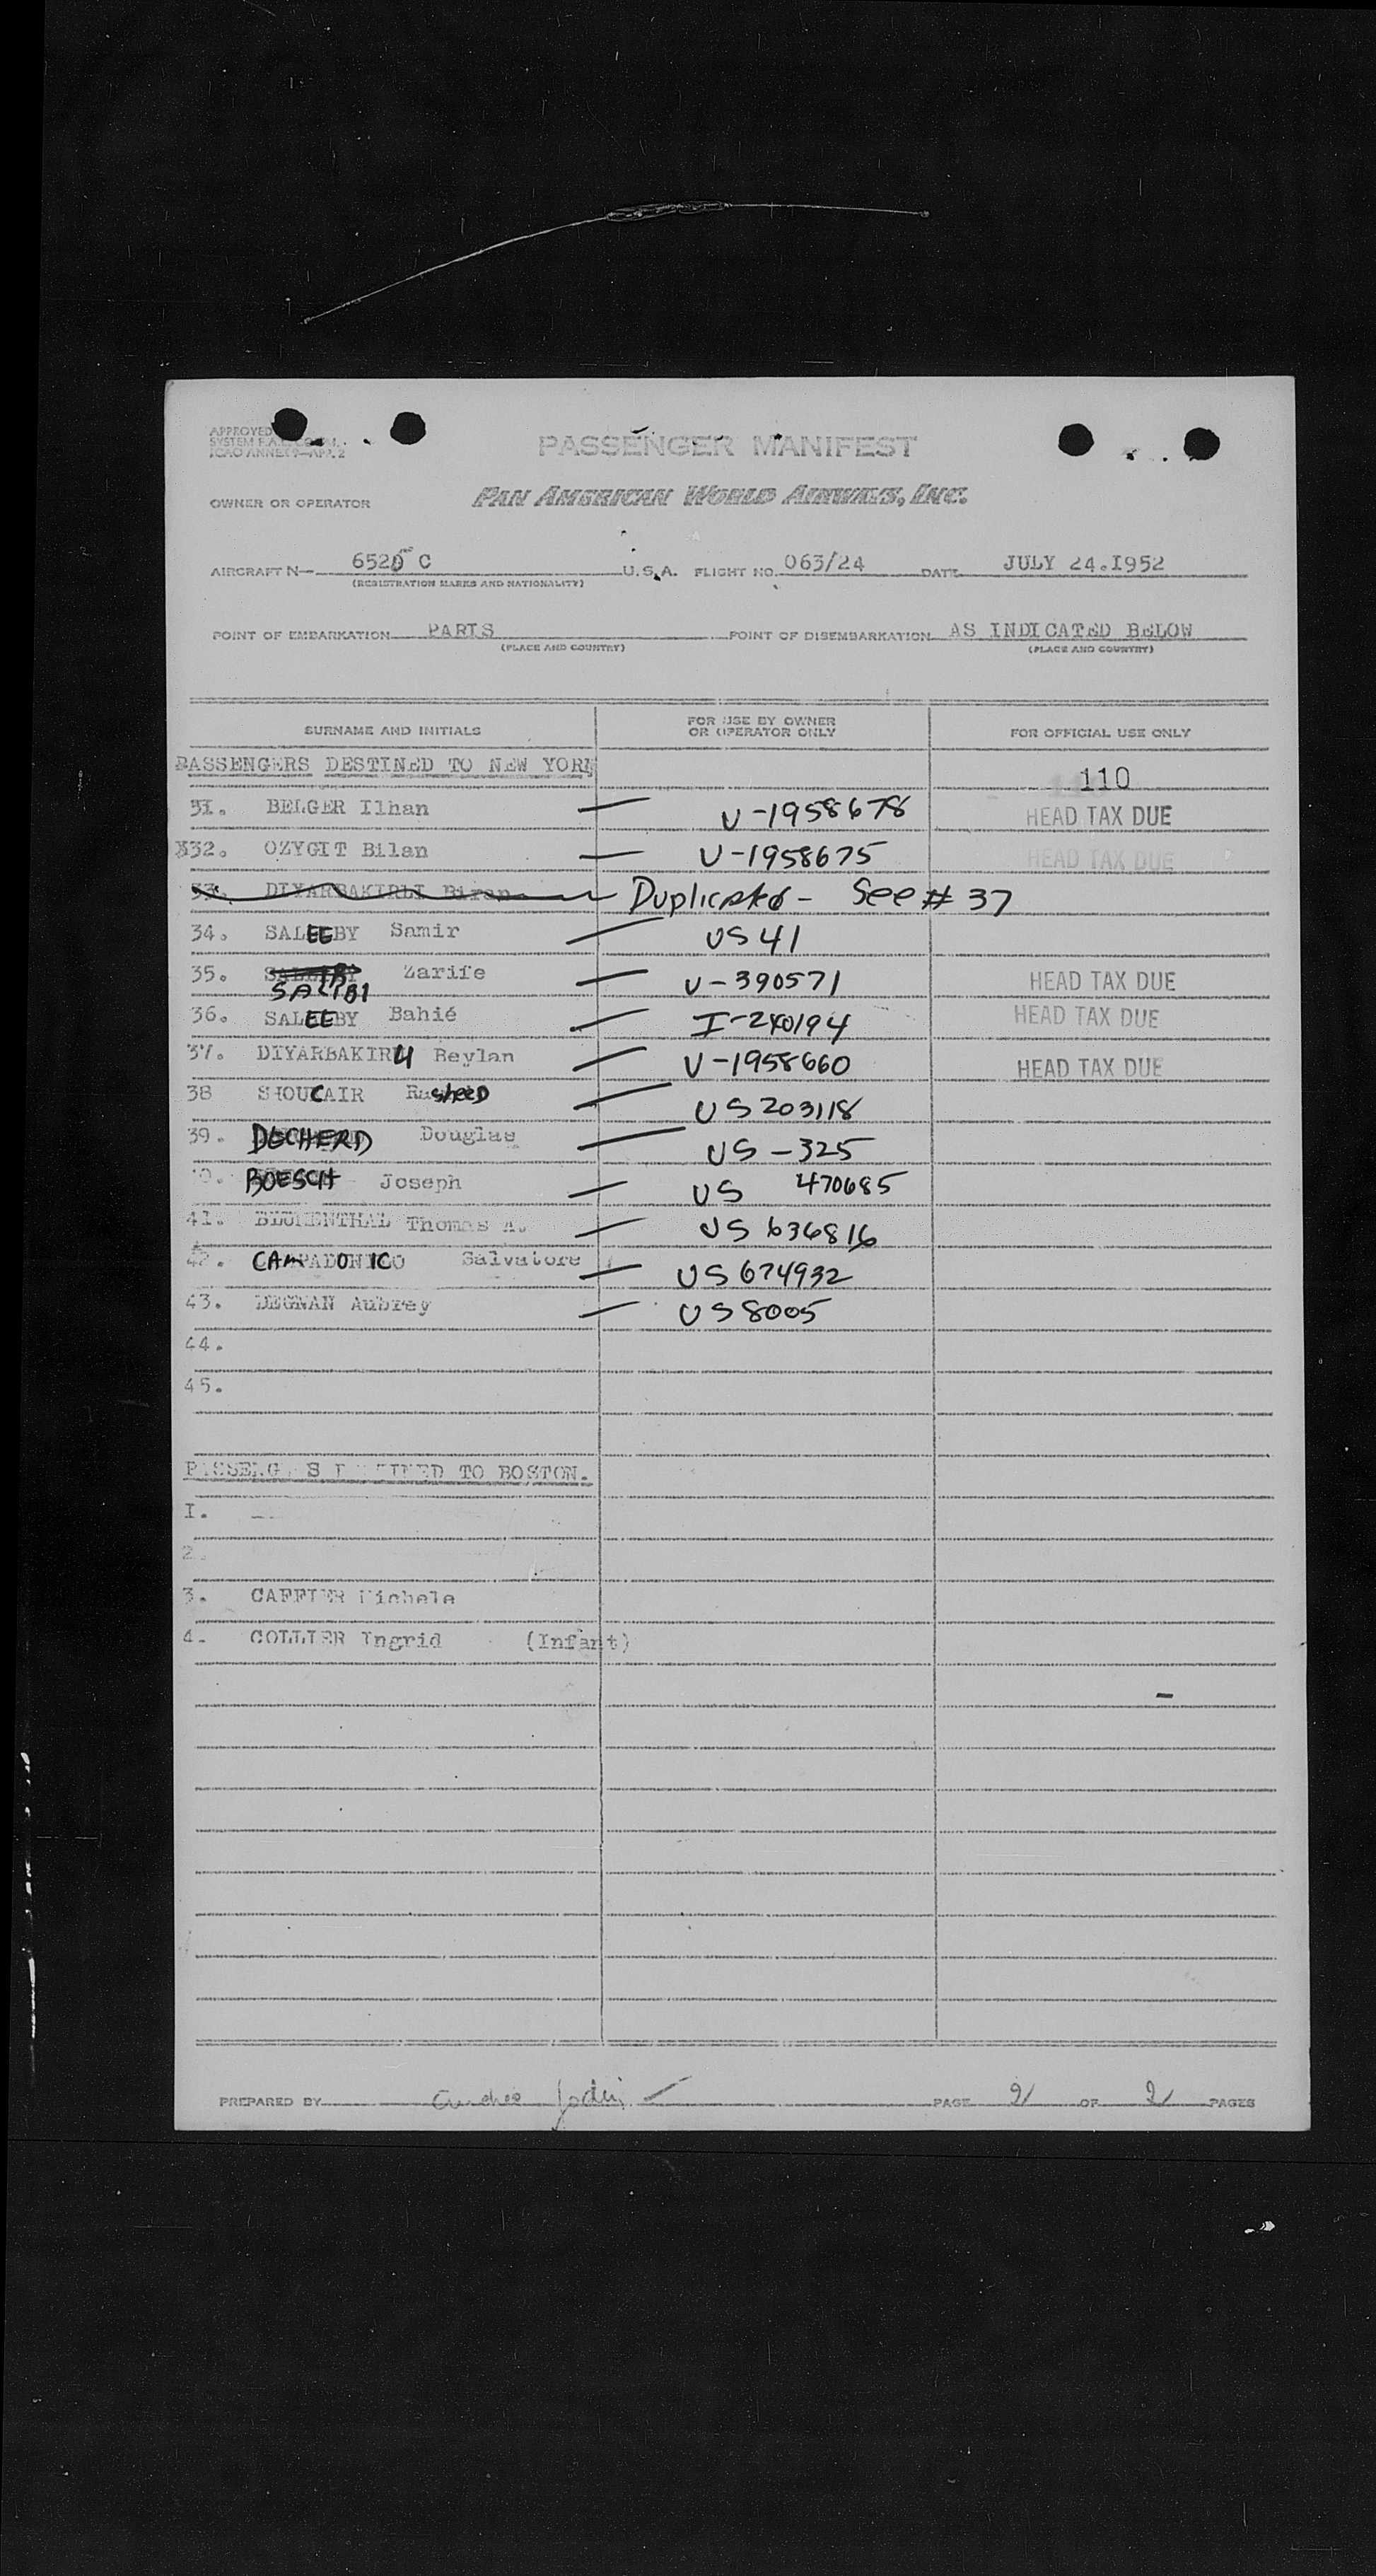 PASSENGER MANIFEST
OWNER OR OPERATOR PAN AMERICAN WORLD AIRWAYS, INC.
AIRCRAFT N— 6525 C U.S.A. FLIGHT NO. 063/24 DATE JULY 24.I952
(REGISTRATION MARKS AND NATIONALITY)
POINT OF EMBARKATION PARIS POINT OF DISEMBARKATION AS INDICATED BELOW
(PLACE AND COUNTRY) (PLACE AND COUNTRY)
SURNAME AND INITIALS FOR USE BY OWNER OR OPERATOR ONLY FOR OFFICIAL USE ONLY
PASSENGERS DESTINED TO NEW YORK
110
31. BELGER Ilhan — U-1958678 HEAD TAX DUE
32. OZYGIT Bilan — U-1958675 HEAD TAX DUE
33. DIYARBAKIRLI Biran Duplicated - See # 37
34. SALEEBY Samir — US 41
35. SALIBI Zarife — U-390571 HEAD TAX DUE
36. SALEEBY Bahié — I-240194 HEAD TAX DUE
37. DIYARBAKIRLI Beylan — U-1958660 HEAD TAX DUE
38 SHOUCAIR Rasheed — US 203118
39. DECHERD Douglas — US-325
40. BOESCH Joseph — US 470685
41. BLUMENTHAL Thomas A. — US 636816
42. CAMPADONICO Salvatore — US 674932
43. DEGNAN Aubrey — US 8005
44.
45.
PASSENGERS DESTINED TO BOSTON.
I.
2.
3. CAFFIER Michele
4. COLLIER Ingrid (Infant)
PREPARED BY PAGE 2 OF 2 PAGES